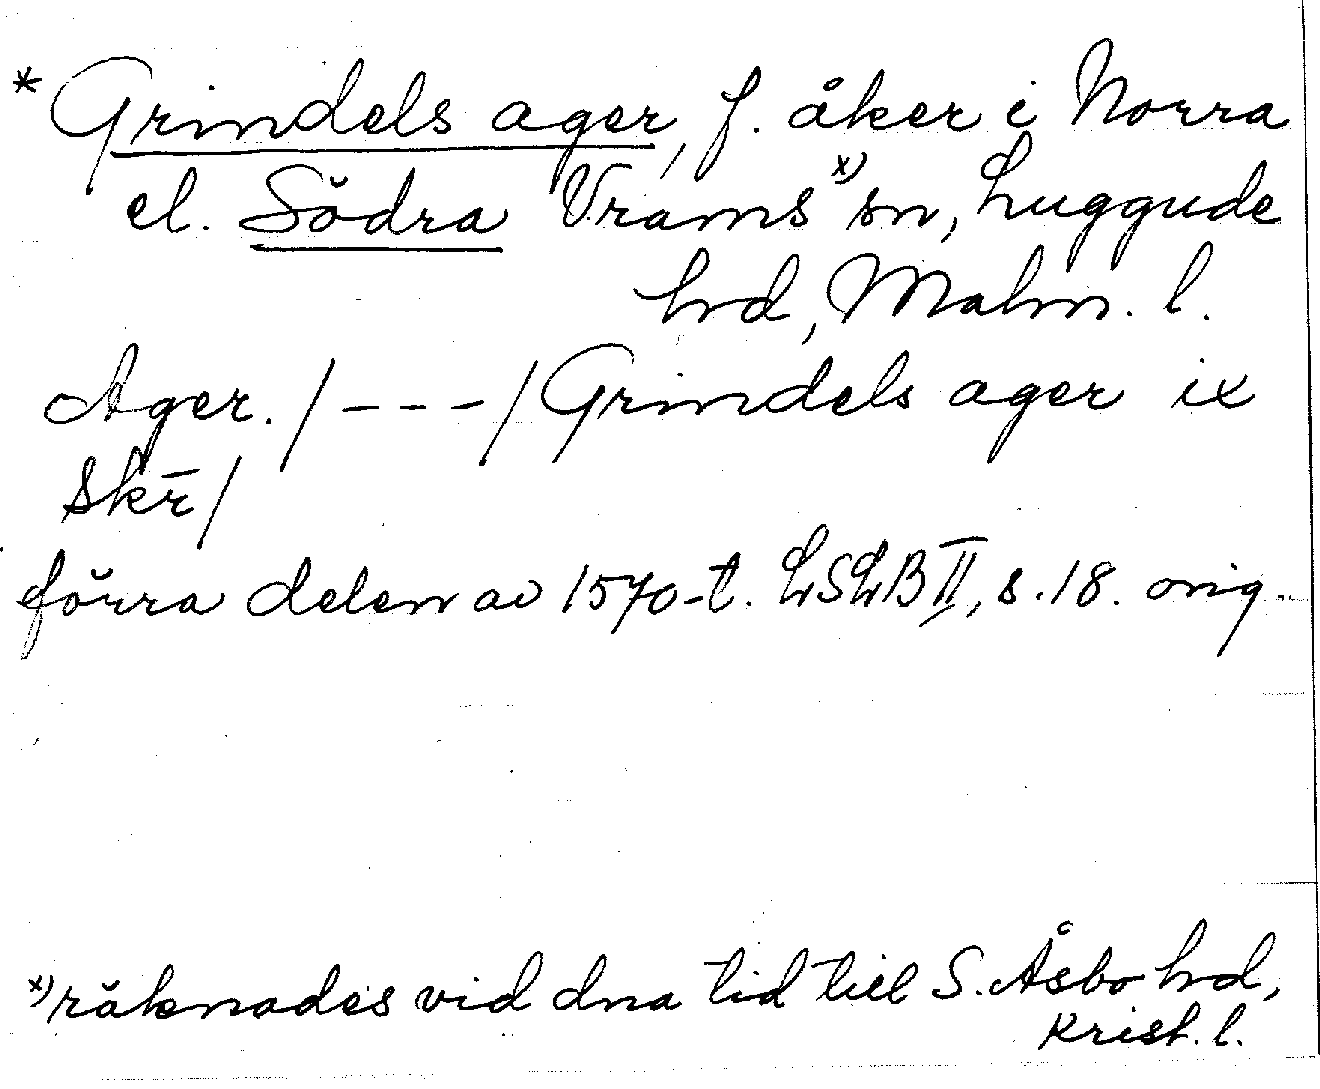 * Grindels ager, f. åker i Norra
el. Södra Vrams x) sn, Luggude
hrd, Malm. l.
Ager. / - - - / Grindels ager ix
skr̄ /
förra delen av 1570-t. LSLB II, s. 18. orig.
x) räknades vid dna tid till S. Åsbo hrd,
Krist. l.